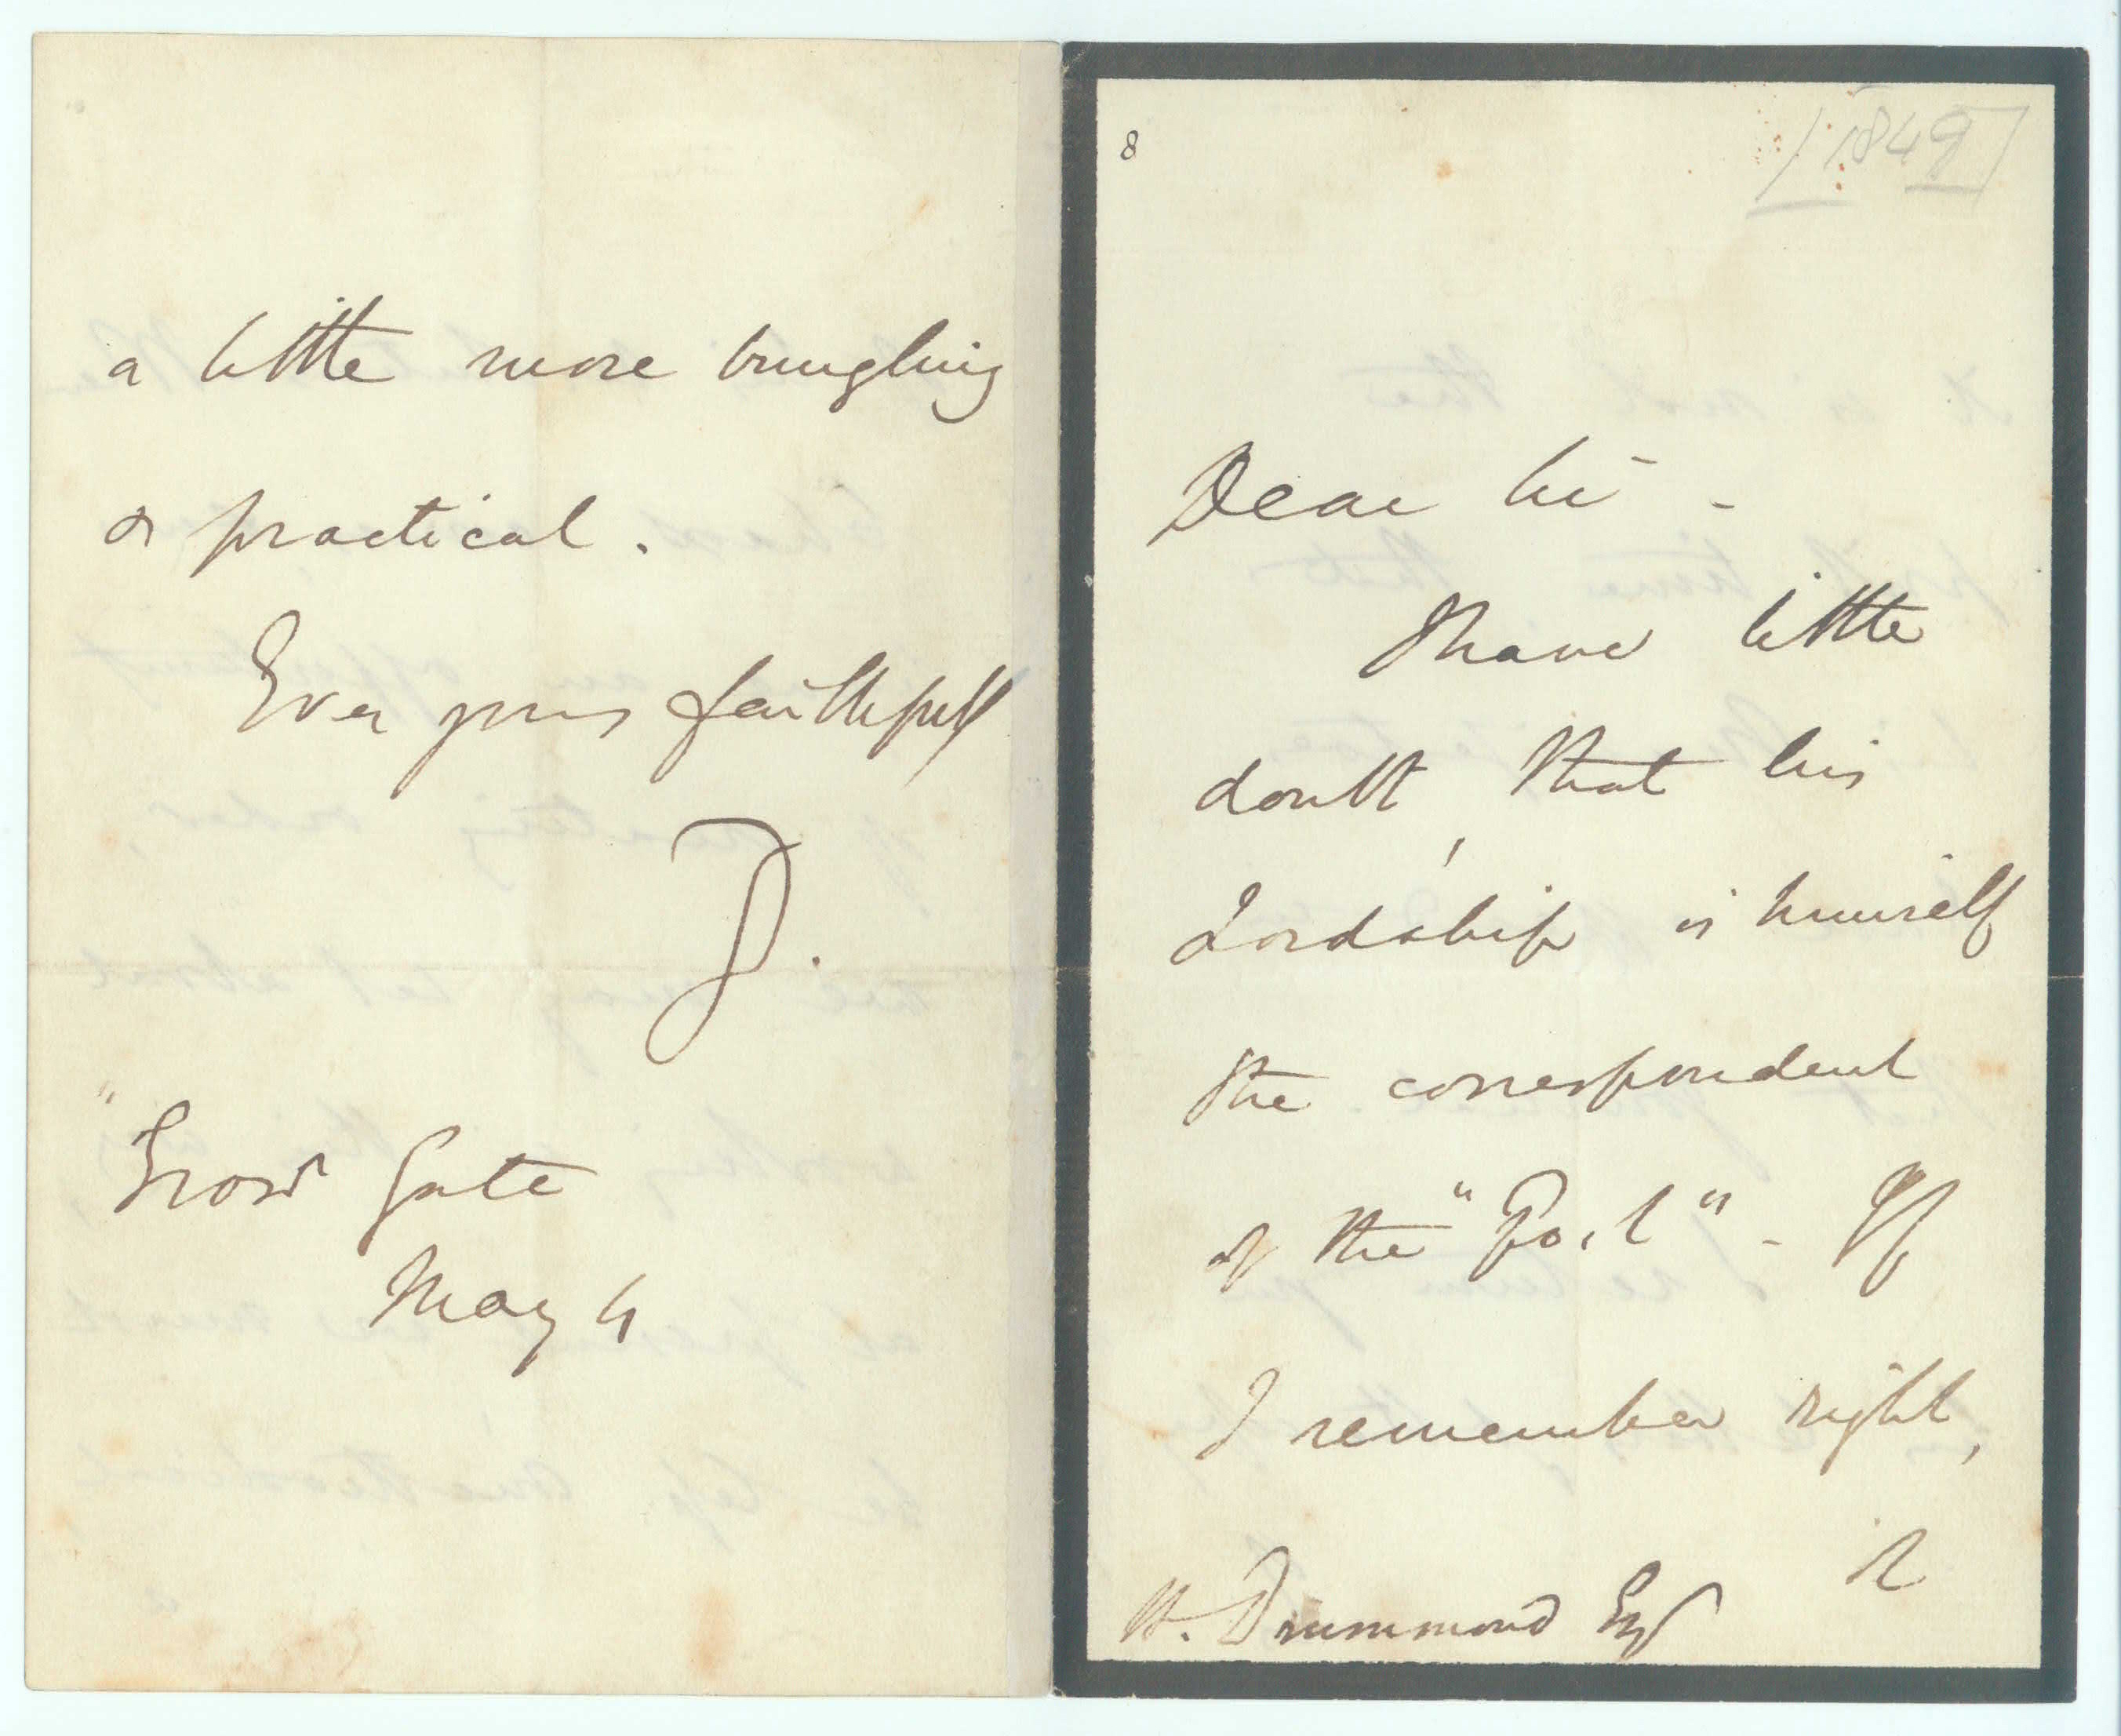 8
[1849]
Dear Sir -
I have little
doubt, that his
Lordship is himself
the correspondent
of the "Post" - If
I remember right,
it
H. Drummond Esq
a little more bungling
or practical.
Ever yours faithfully
D.
"Grosr Gate
May 4